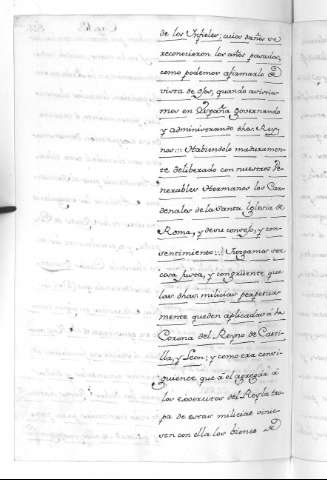 de los Ynfieles; cuios daños se
reconocieron los años pasados,
como podemos afirmarlo de
vista de ojos, quando asistia-
mos en España governando
y administrando dhos. Rey-
nos: Habiendolo maduramen-
te deliberado con nuestros Ve-
nerables Hermanos los Car-
denales de la Santa Iglesia de
Roma, y de su consejo, y con-
sentimiento: Juzgamos ser
cosa justa, y congruente que
las dhas. milicias perpetua-
mente queden aplicadas à la
Corona del Reyno de Casti-
lla, y Leon; y como era consi-
guiente que à el agregàr à
los esfuerzos del Rey la tro-
pa de estas milicias vinie-
sen con ella los bienes de